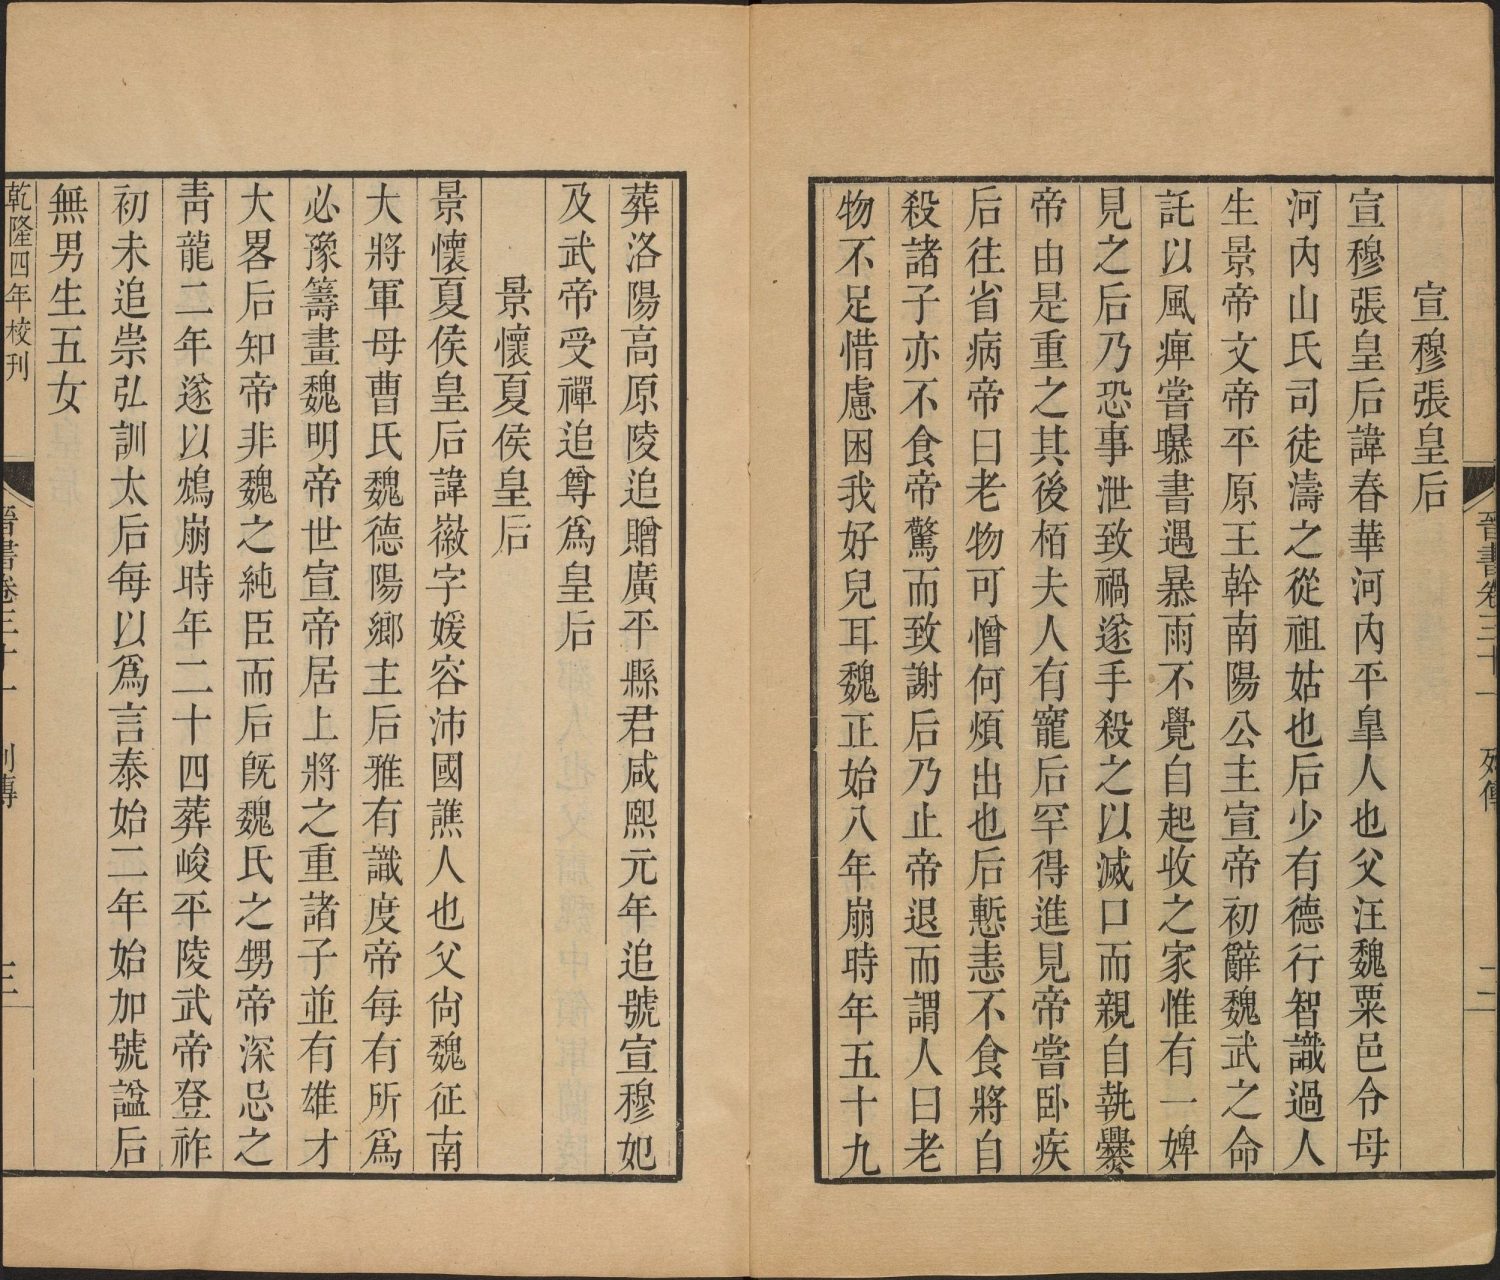 晉書卷三十一 列傳 二
宣穆張皇后
宣穆張皇后諱春華河內平皐人也父汪魏粟邑令母
河內山氏司徒濤之從祖姑也后少有德行智識過人
生景帝文帝平原王幹南陽公主宣帝初辭魏武之命
託以風痺嘗曝書遇暴雨不覺自起收之家惟有一婢
見之后乃恐事泄致禍遂手殺之以滅口而親自執爨
帝由是重之其後栢夫人有寵后罕得進見帝嘗卧疾
后往省病帝曰老物可憎何煩出也后慙恚不食將自
殺諸子亦不食帝驚而致謝后乃止帝退而謂人曰老
物不足惜慮困我好兒耳魏正始八年崩時年五十九
葬洛陽高原陵追贈廣平縣君咸熙元年追號宣穆妃
及武帝受禪追尊爲皇后
景懷夏侯皇后
景懷夏侯皇后諱徽字媛容沛國譙人也父尙魏征南
大將軍母曹氏魏德陽鄉主后雅有識度帝每有所爲
必豫籌畫魏明帝世宣帝居上將之重諸子並有雄才
大畧后知帝非魏之純臣而后旣魏氏之甥帝深忌之
靑龍二年遂以鴆崩時年二十四葬峻平陵武帝登祚
初未追崇弘訓太后每以爲言泰始二年始加號諡后
無男生五女
乾隆四年校刊 晉書卷三十一 列傳 三